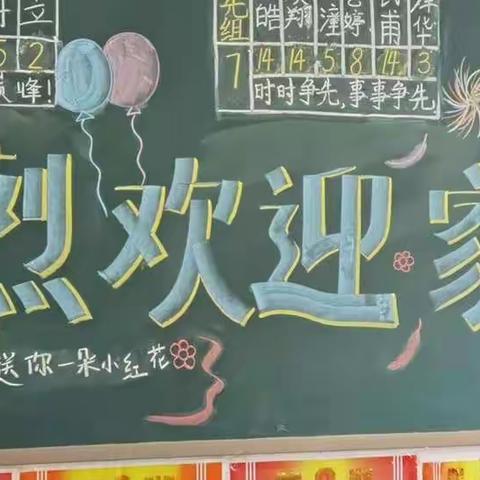 立
5 2
巅峰!
先组 皓 翔 潼 婷 雨 华
7 14 14 5 8 14 3
时时争先,事事争先,
烈欢迎家
送你一朵小红花